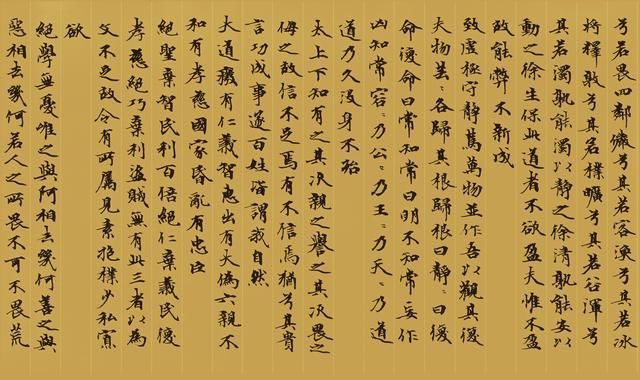 兮若畏四鄰儼兮其若客渙兮其若冰
将釋敦兮其若樸曠兮其若谷渾兮
其若濁孰能濁以静之徐清孰能安以
動之徐生保此道者不欲盈夫惟不盈
故能弊不新成
致虚極守静篤萬物並作吾以觀其復
夫物芸〻各歸其根歸根曰静〻曰復
命復命曰常知常曰明不知常妄作
凶知常容〻乃公〻乃王〻乃天〻乃道
道乃久没身不殆
太上下知有之其次親之譽之其次畏之
侮之故信不足焉有不信焉猶兮其貴
言功成事遂百姓皆謂我自然
大道廢有仁義智惠出有大偽六親不
和有孝慈國家昏亂有忠臣
絕聖棄智民利百倍絕仁棄義民復
孝慈絕巧棄利盗賊無有此三者以為
文不足故令有所属見素抱樸少私寡
欲
絕學無憂唯之與阿相去幾何善之與
惡相去幾何若人之所畏不可不畏荒